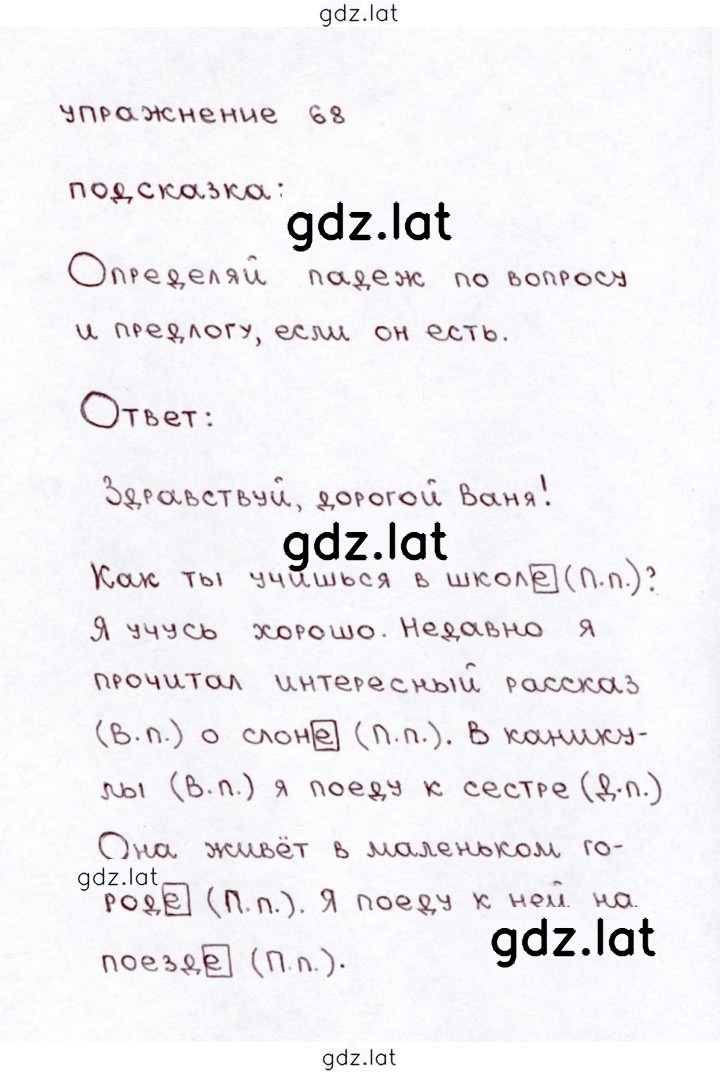 gdz.lat
упражнение 68
подсказка:
gdz.lat
Определяй падеж по вопросу
и предлогу, если он есть.
Ответ:
Здравствуй, дорогой Ваня!
gdz.lat
Как ты учишься в школе (П.п.)?
Я учусь хорошо. Недавно я
прочитал интересный рассказ
(В.п.) о слоне (П.п.). В канику-
лы (В.п.) я поеду к сестре (Д.п.)
Она живёт в маленьком го-
gdz.lat
роде (П.п.). Я поеду к ней на
gdz.lat
поезде (П.п.).
gdz.lat